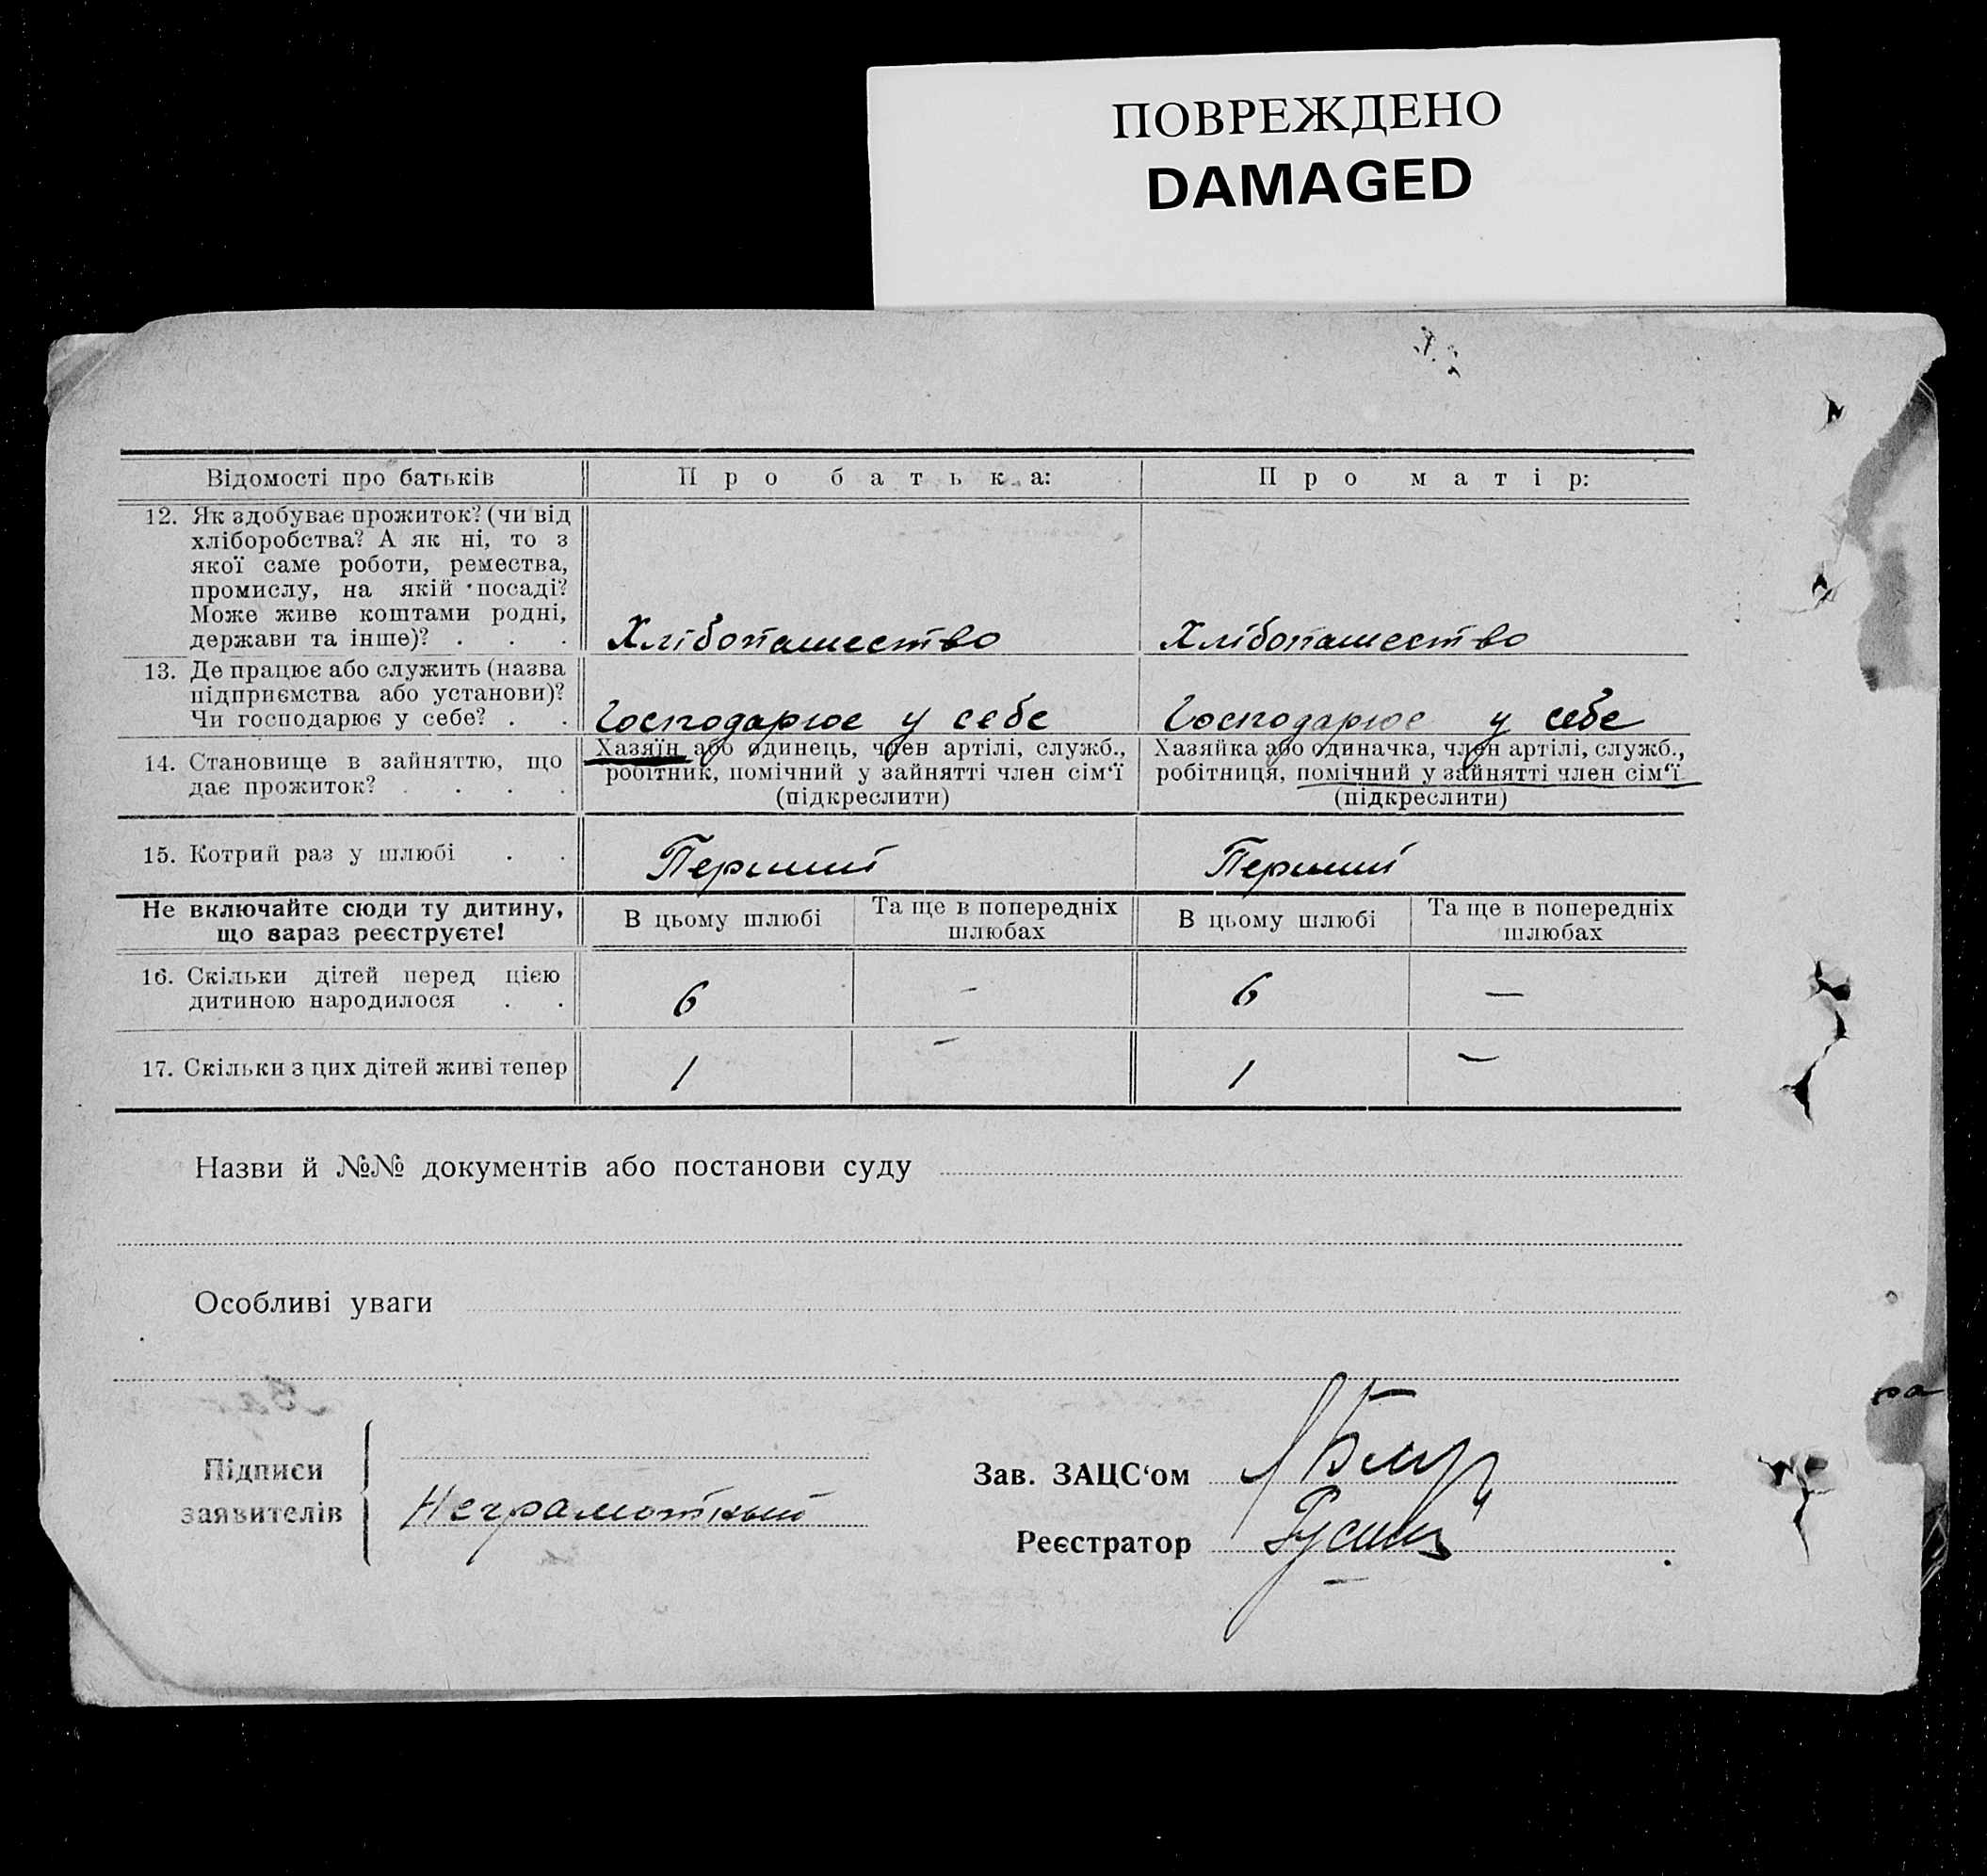 ПОВРЕЖДЕНО
DAMAGED
Відомості про батьків
Про батька:
Про матір:
12. Як здобуває прожиток? (чи від
хліборобства? А як ні, то з
якої саме роботи, ремества,
промислу, на якій посаді?
Може живе коштами родні,
держави та інше)? . . .
Хлібопашество
Хлібопашество
13. Де працює або служить (назва
підприємства або установи)?
Чи господарює у себе? . .
Господарює у себе
Господарює у себе
14. Становище в зайняттю, що
дає прожиток? . . . .
Хазяїн або одинець, член артілі, служб.,
робітник, помічний у зайнятті член сім'ї
(підкреслити)
Хазяйка або одиначка, член артілі, служб.,
робітниця, помічний у зайнятті член сім'ї
(підкреслити)
15. Котрий раз у шлюбі . .
Перший
Перший
Не включайте сюди ту дитину,
що зараз реєструєте!
В цьому шлюбі
Та ще в попередніх
шлюбах
В цьому шлюбі
Та ще в попередніх
шлюбах
16. Скільки дітей перед цією
дитиною народилося . .
6
-
6
—
17. Скільки з цих дітей живі тепер
1
-
1
—
Назви й №№ документів або постанови суду
Особливі уваги
Підписи
заявителів
Неграмотный
Зав. ЗАЦС'ом
Реєстратор